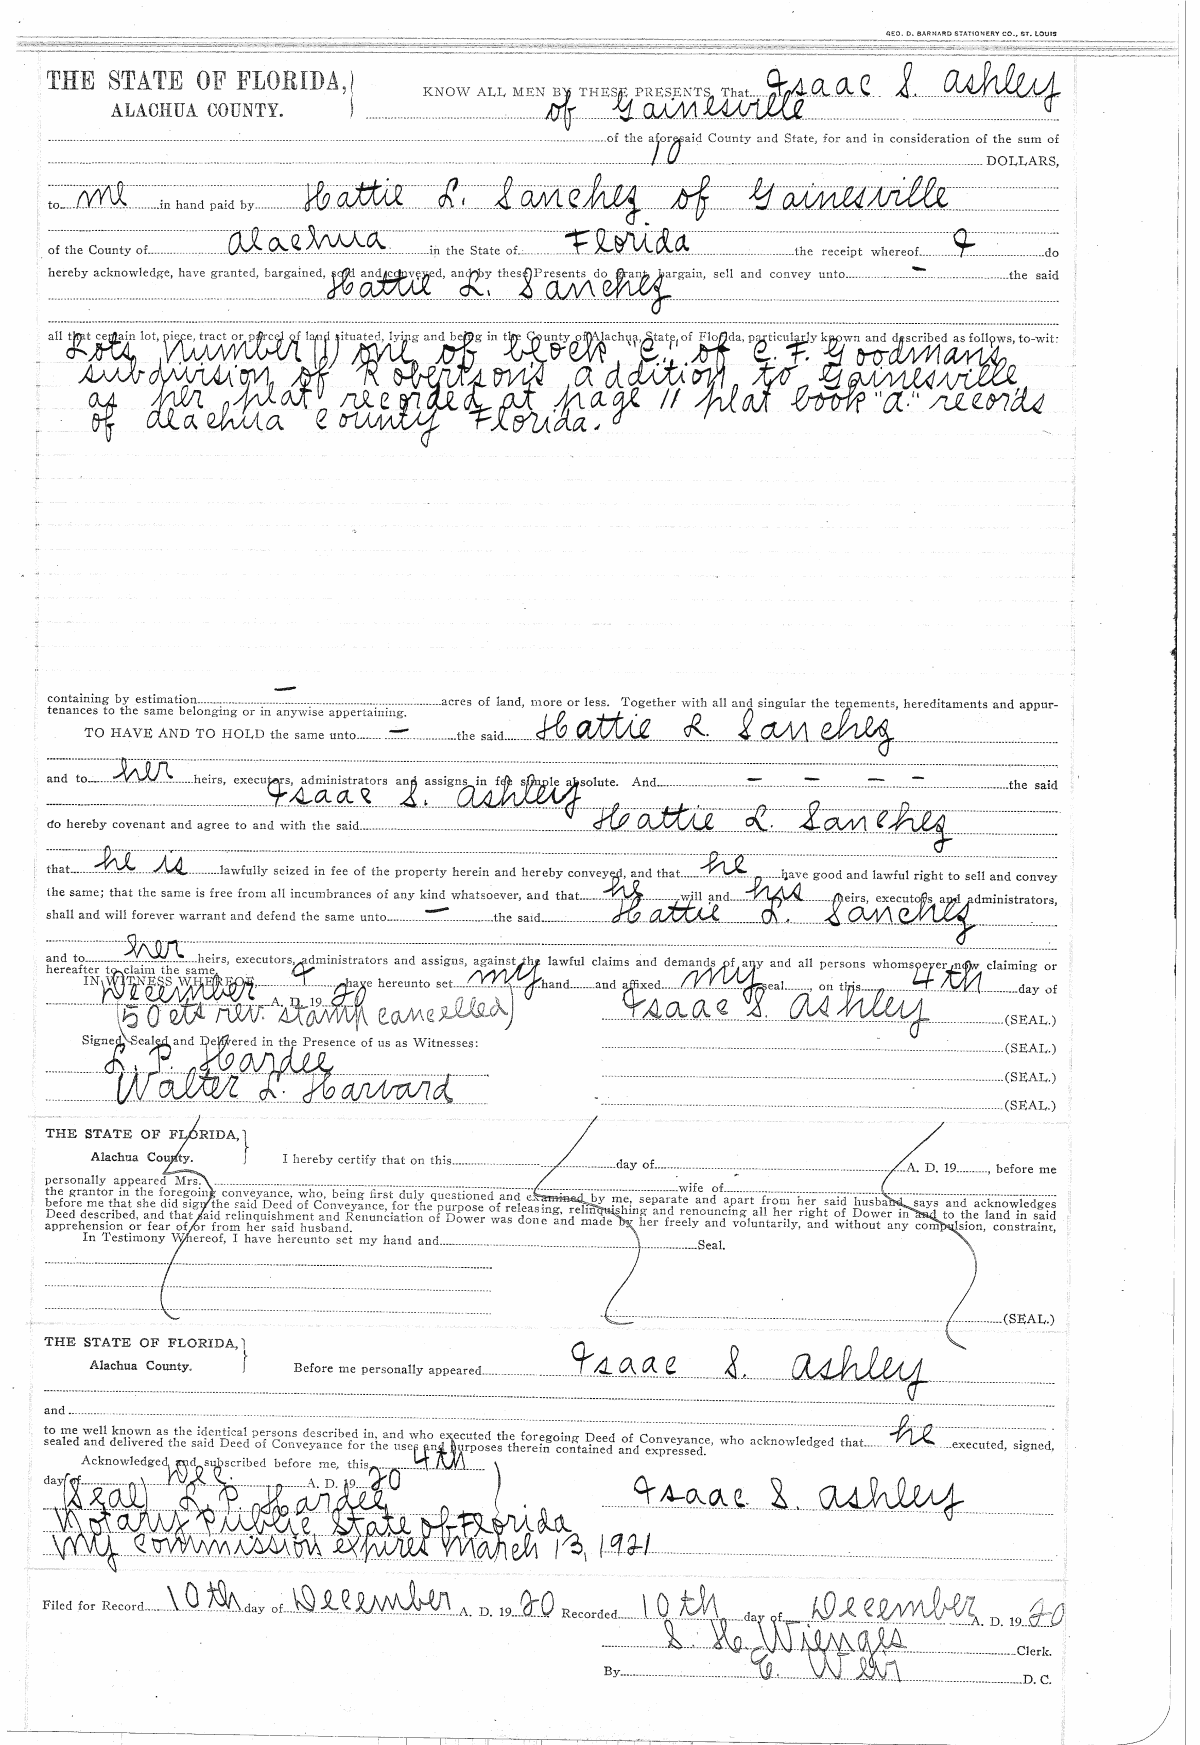 GEO. D. BARNARD STATIONERY CO., ST. LOUIS
THE STATE OF FLORIDA,
ALACHUA COUNTY.
KNOW ALL MEN BY THESE PRESENTS, That Isaac S. Ashley
of Gainesville
of the aforesaid County and State, for and in consideration of the sum of
10 DOLLARS,
to me in hand paid by Hattie L. Sanchez of Gainesville
of the County of Alachua in the State of Florida the receipt whereof I do
hereby acknowledge, have granted, bargained, sold and conveyed, and by these Presents do grant, bargain, sell and convey unto - the said
Hattie L. Sanchez
all that certain lot, piece, tract or parcel of land situated, lying and being in the County of Alachua, State of Florida, particularly known and described as follows, to-wit:
Lots number (1) one of block "C", of C. F. Goodmans
subdivision of Robertsons addition to Gainesville
as per plat recorded at page 11 plat book "A" records
of Alachua County Florida.
containing by estimation - acres of land, more or less. Together with all and singular the tenements, hereditaments and appur-
tenances to the same belonging or in anywise appertaining.
TO HAVE AND TO HOLD the same unto - the said Hattie L. Sanchez
and to her heirs, executors, administrators and assigns in fee simple absolute. And - - - - the said
Isaac S. Ashley
do hereby covenant and agree to and with the said Hattie L. Sanchez
that he is lawfully seized in fee of the property herein and hereby conveyed, and that he have good and lawful right to sell and convey
the same; that the same is free from all incumbrances of any kind whatsoever, and that he will and his heirs, executors and administrators,
shall and will forever warrant and defend the same unto - the said Hattie L. Sanchez
and to her heirs, executors, administrators and assigns, against the lawful claims and demands of any and all persons whomsoever now claiming or
hereafter to claim the same.
IN WITNESS WHEREOF, I have hereunto set my hand and affixed my seal, on this 4th day of
December A. D. 19 20
(50 cts rev. stamp cancelled) Isaac S. Ashley (SEAL.)
Signed, Sealed and Delivered in the Presence of us as Witnesses: (SEAL.)
L. P. Hardee (SEAL.)
Walter L. Harvard (SEAL.)
THE STATE OF FLORIDA,
Alachua County.
I hereby certify that on this day of A. D. 19 , before me
personally appeared Mrs. wife of
the grantor in the foregoing conveyance, who, being first duly questioned and examined by me, separate and apart from her said husband, says and acknowledges
before me that she did sign the said Deed of Conveyance, for the purpose of releasing, relinquishing and renouncing all her right of Dower in and to the land in said
Deed described, and that said relinquishment and Renunciation of Dower was done and made by her freely and voluntarily, and without any compulsion, constraint,
apprehension or fear of or from her said husband.
In Testimony Whereof, I have hereunto set my hand and Seal.
(SEAL.)
THE STATE OF FLORIDA,
Alachua County.
Before me personally appeared Isaac S. Ashley
and
to me well known as the identical persons described in, and who executed the foregoing Deed of Conveyance, who acknowledged that he executed, signed,
sealed and delivered the said Deed of Conveyance for the uses and purposes therein contained and expressed.
Acknowledged and subscribed before me, this 4th
day of Dec. A. D. 19 20
(Seal) L. P. Hardee Isaac S. Ashley
Notary Public State of Florida
My commission expires March 13, 1921
Filed for Record 10th day of December A. D. 19 20 Recorded 10th day of December A. D. 19 20
S. H. Wienges Clerk.
By E. Weir D. C.